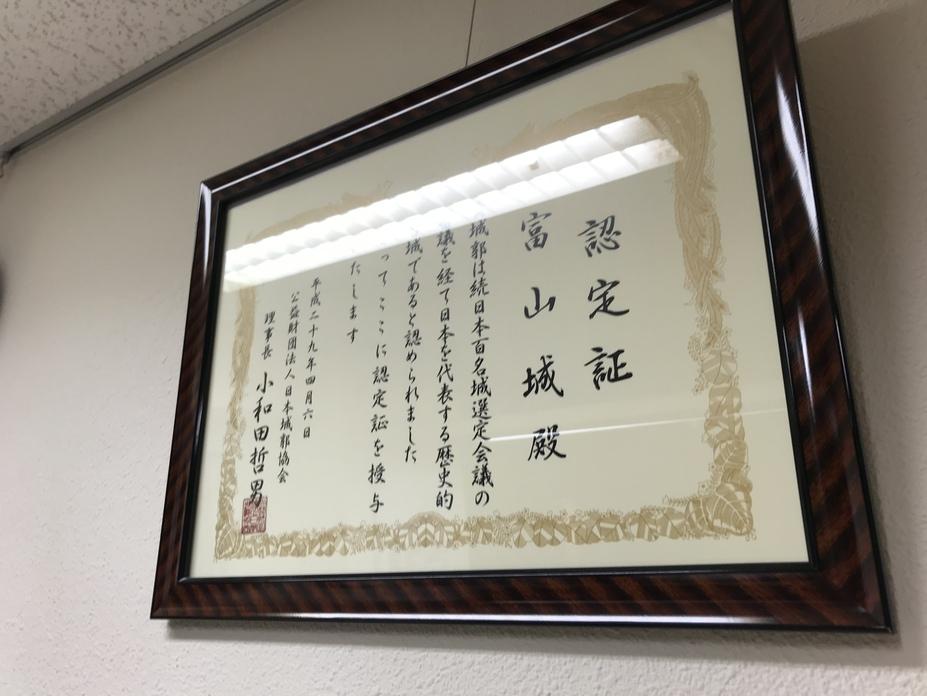 認定証
富山城殿
城郭は続日本百名城選定会議の
議を経て日本を代表する歴史的
城であると認められました
ってここに認定証を授与
たします
平成二十九年四月六日
公益財団法人日本城郭協会
理事長 小和田哲男